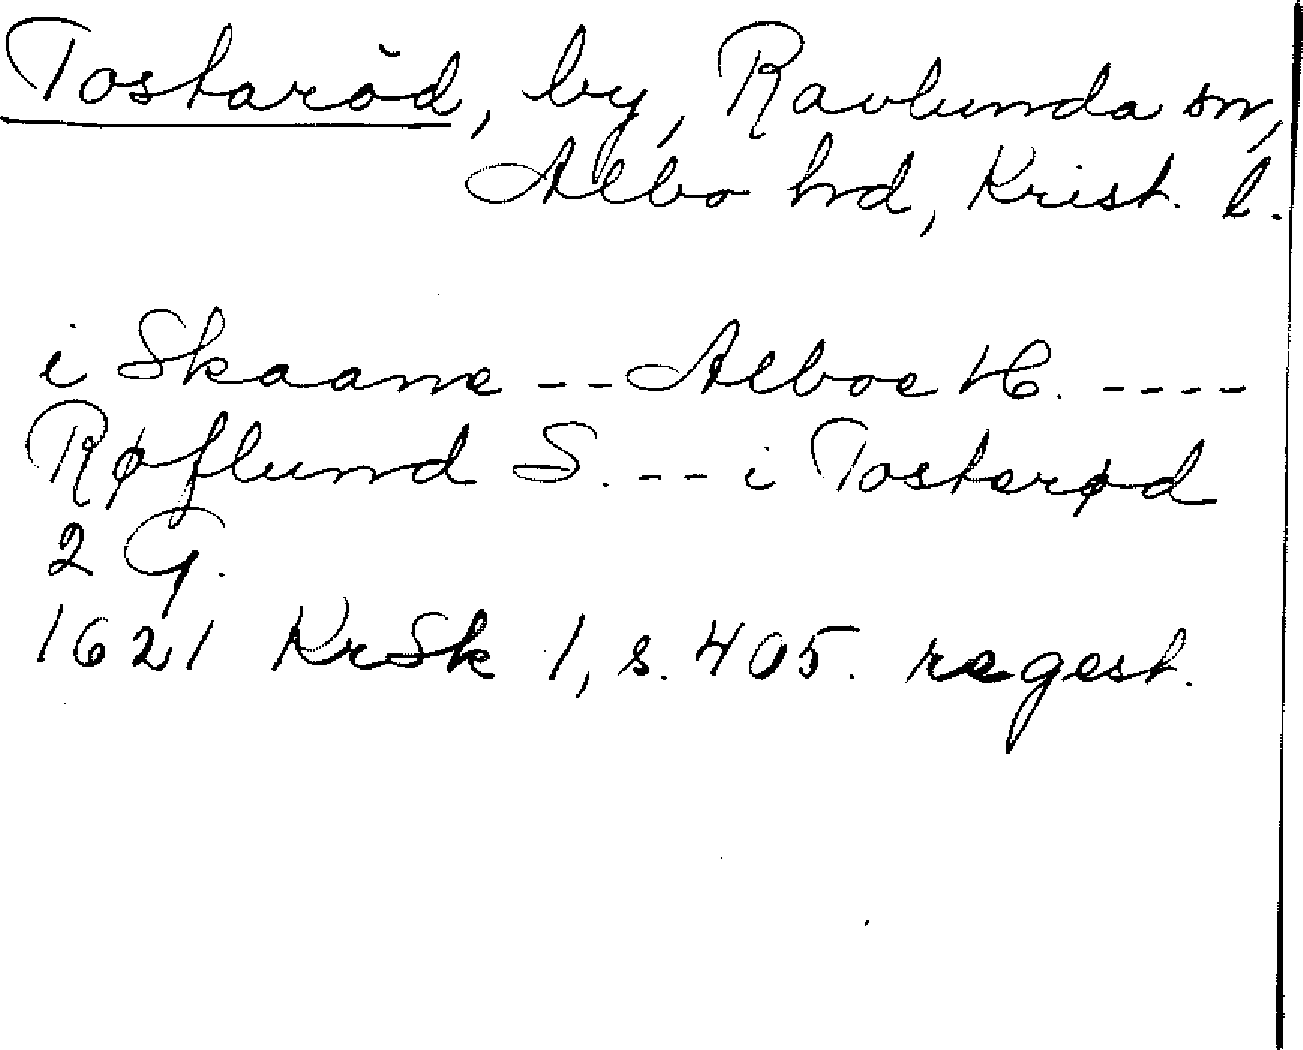 Tostaröd, by, Ravlunda sn,
Albo hd, Krist. l.
i Skaane -- Alboe H. ----
Røflund S. --- i Tosterød
2 G.
1621 KrSk 1, s. 405. regest.